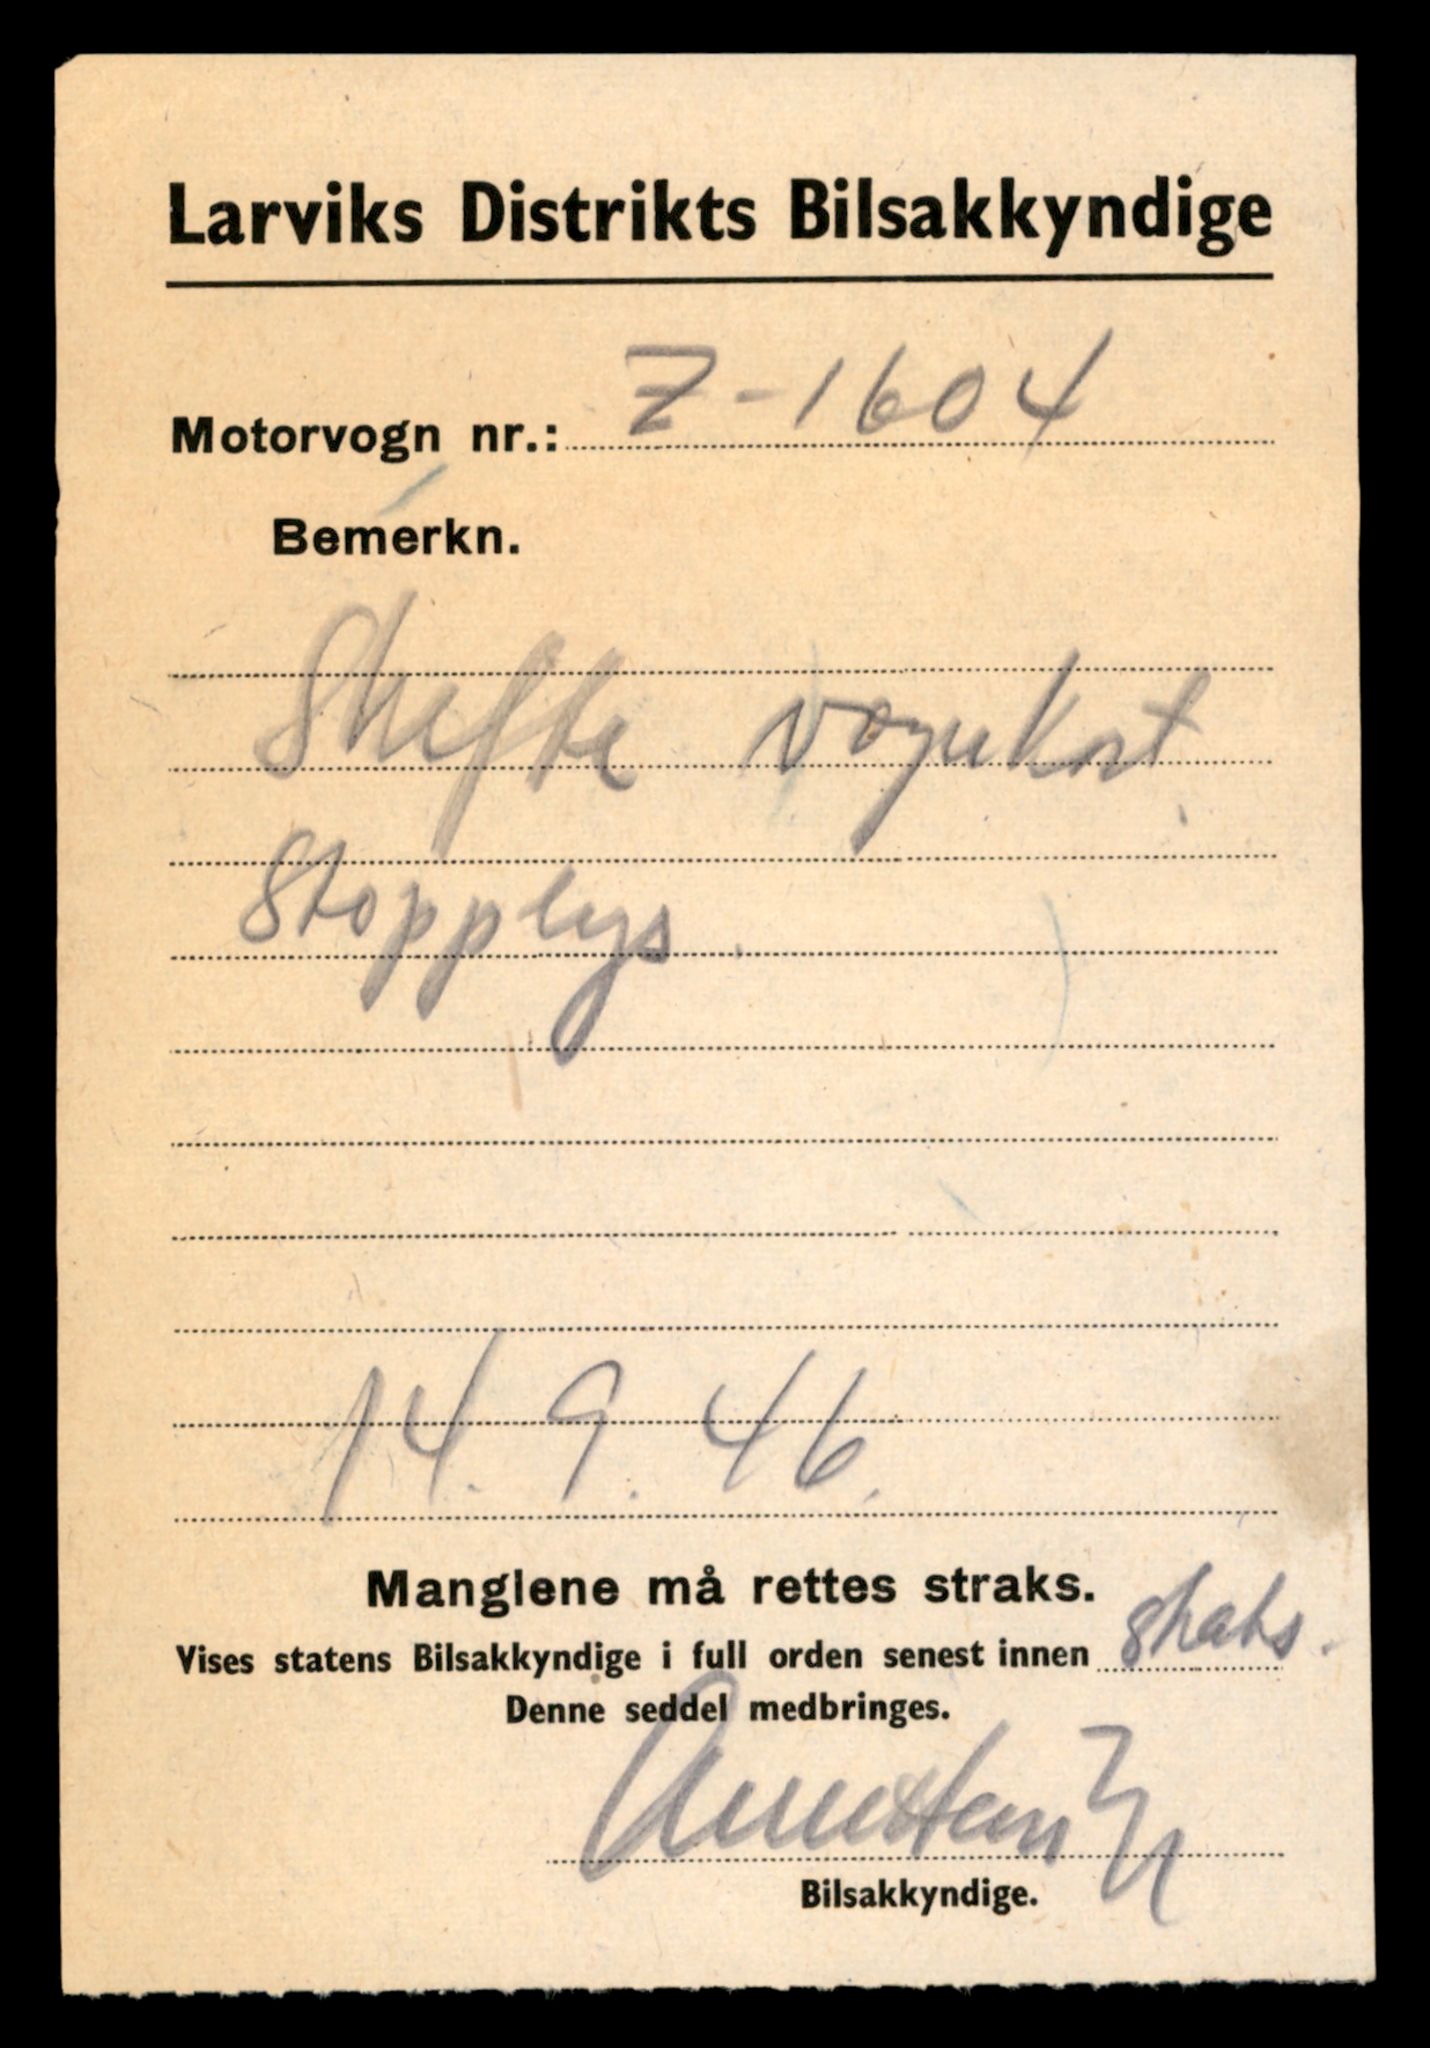 Larviks Distrikts Bilsakkyndige
Motorvogn nr.: Z-1604
Bemerkn.
Skifte vognkort.
Stopplys.
14.9.46.
Manglene må rettes straks.
Vises statens Bilsakkyndige i full orden senest innen straks.
Denne seddel medbringes.
Bilsakkyndige.